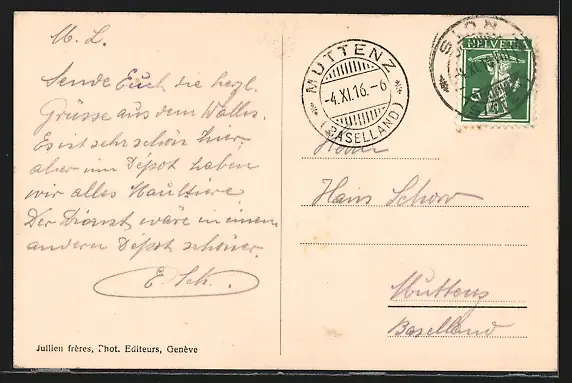 M. L.
Sende Euch die herzl.
Grüsse aus dem Wallis.
Es ist sehr schön hier,
aber im Depot haben
wir alles Maultiere
Der Dienst wäre in einem
andern Depot schöner.
E. Sch.
Jullien frères, Phot. Editeurs, Genève
MUTTENZ
-4.XI.16.-6
(BASELLAND)
SION
HELVETIA
5
Herrn
Hans Schorr
Muttenz
Baselland